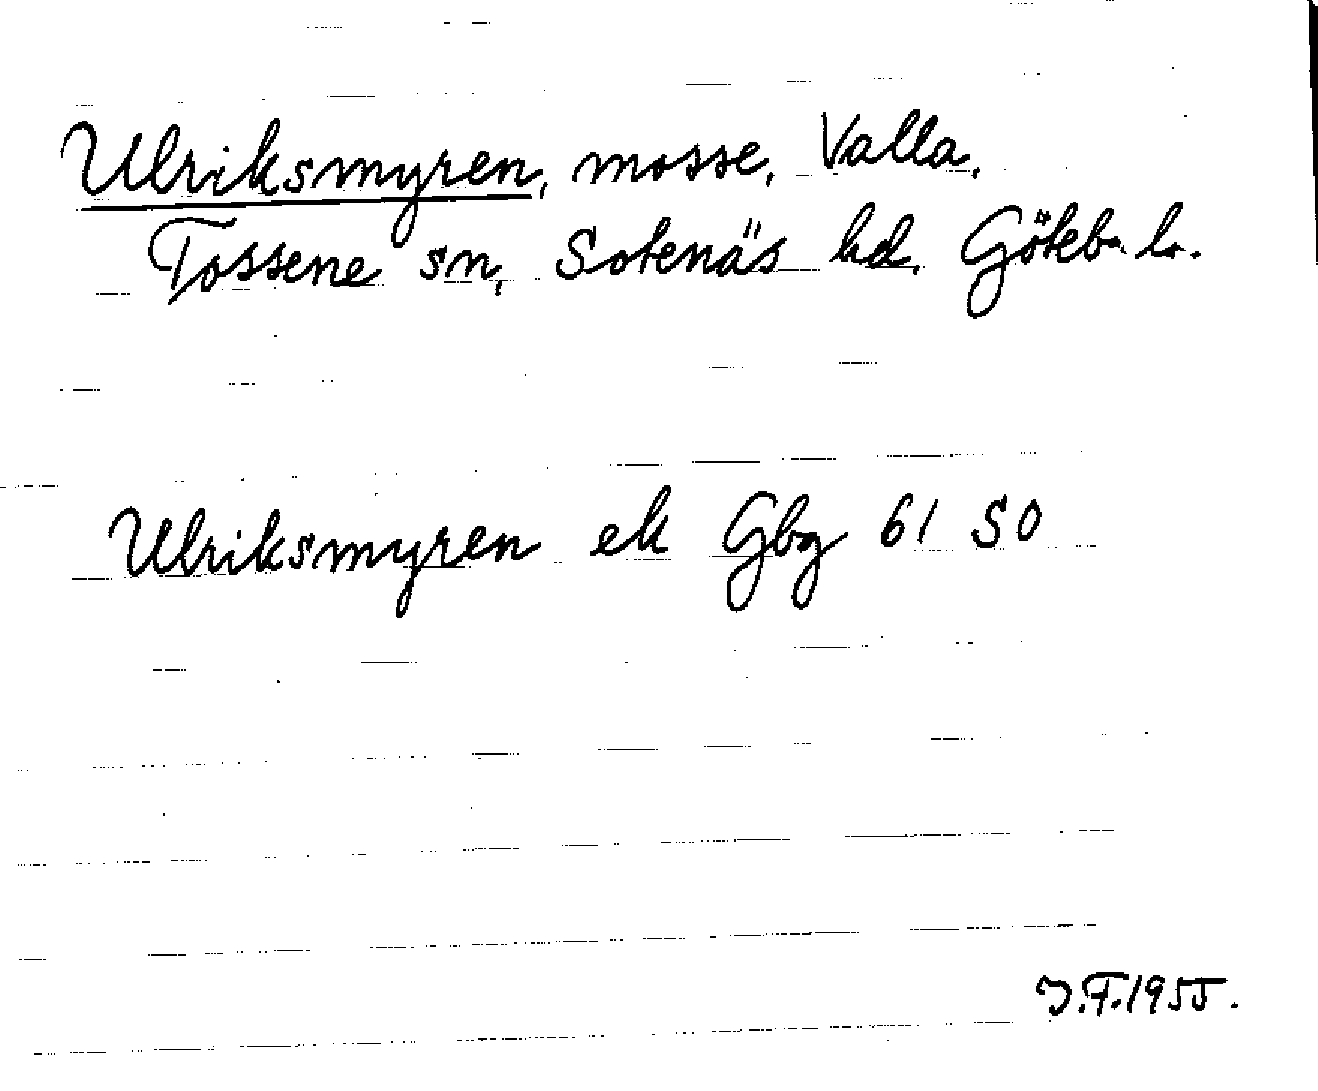 Ulriksmyren, mosse, Valla,
Tossene sn, Sotenäs hd, Göteb. l.
Ulriksmyren ek Gbg 61 SO
J.F.1955.